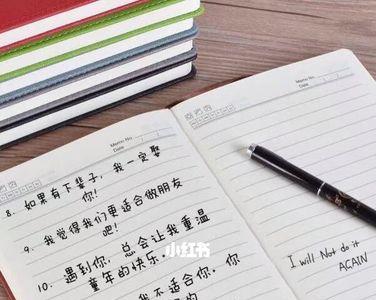 Memo No.
Date
8. 如果有下辈子，我一定娶
你！
9. 我觉得我们更适合做朋友
吧！
10. 遇到你，总会让我重温
童年的快乐。
我不适合你，你
小红书
Memo No.
Date
I will Not do it
AGAIN